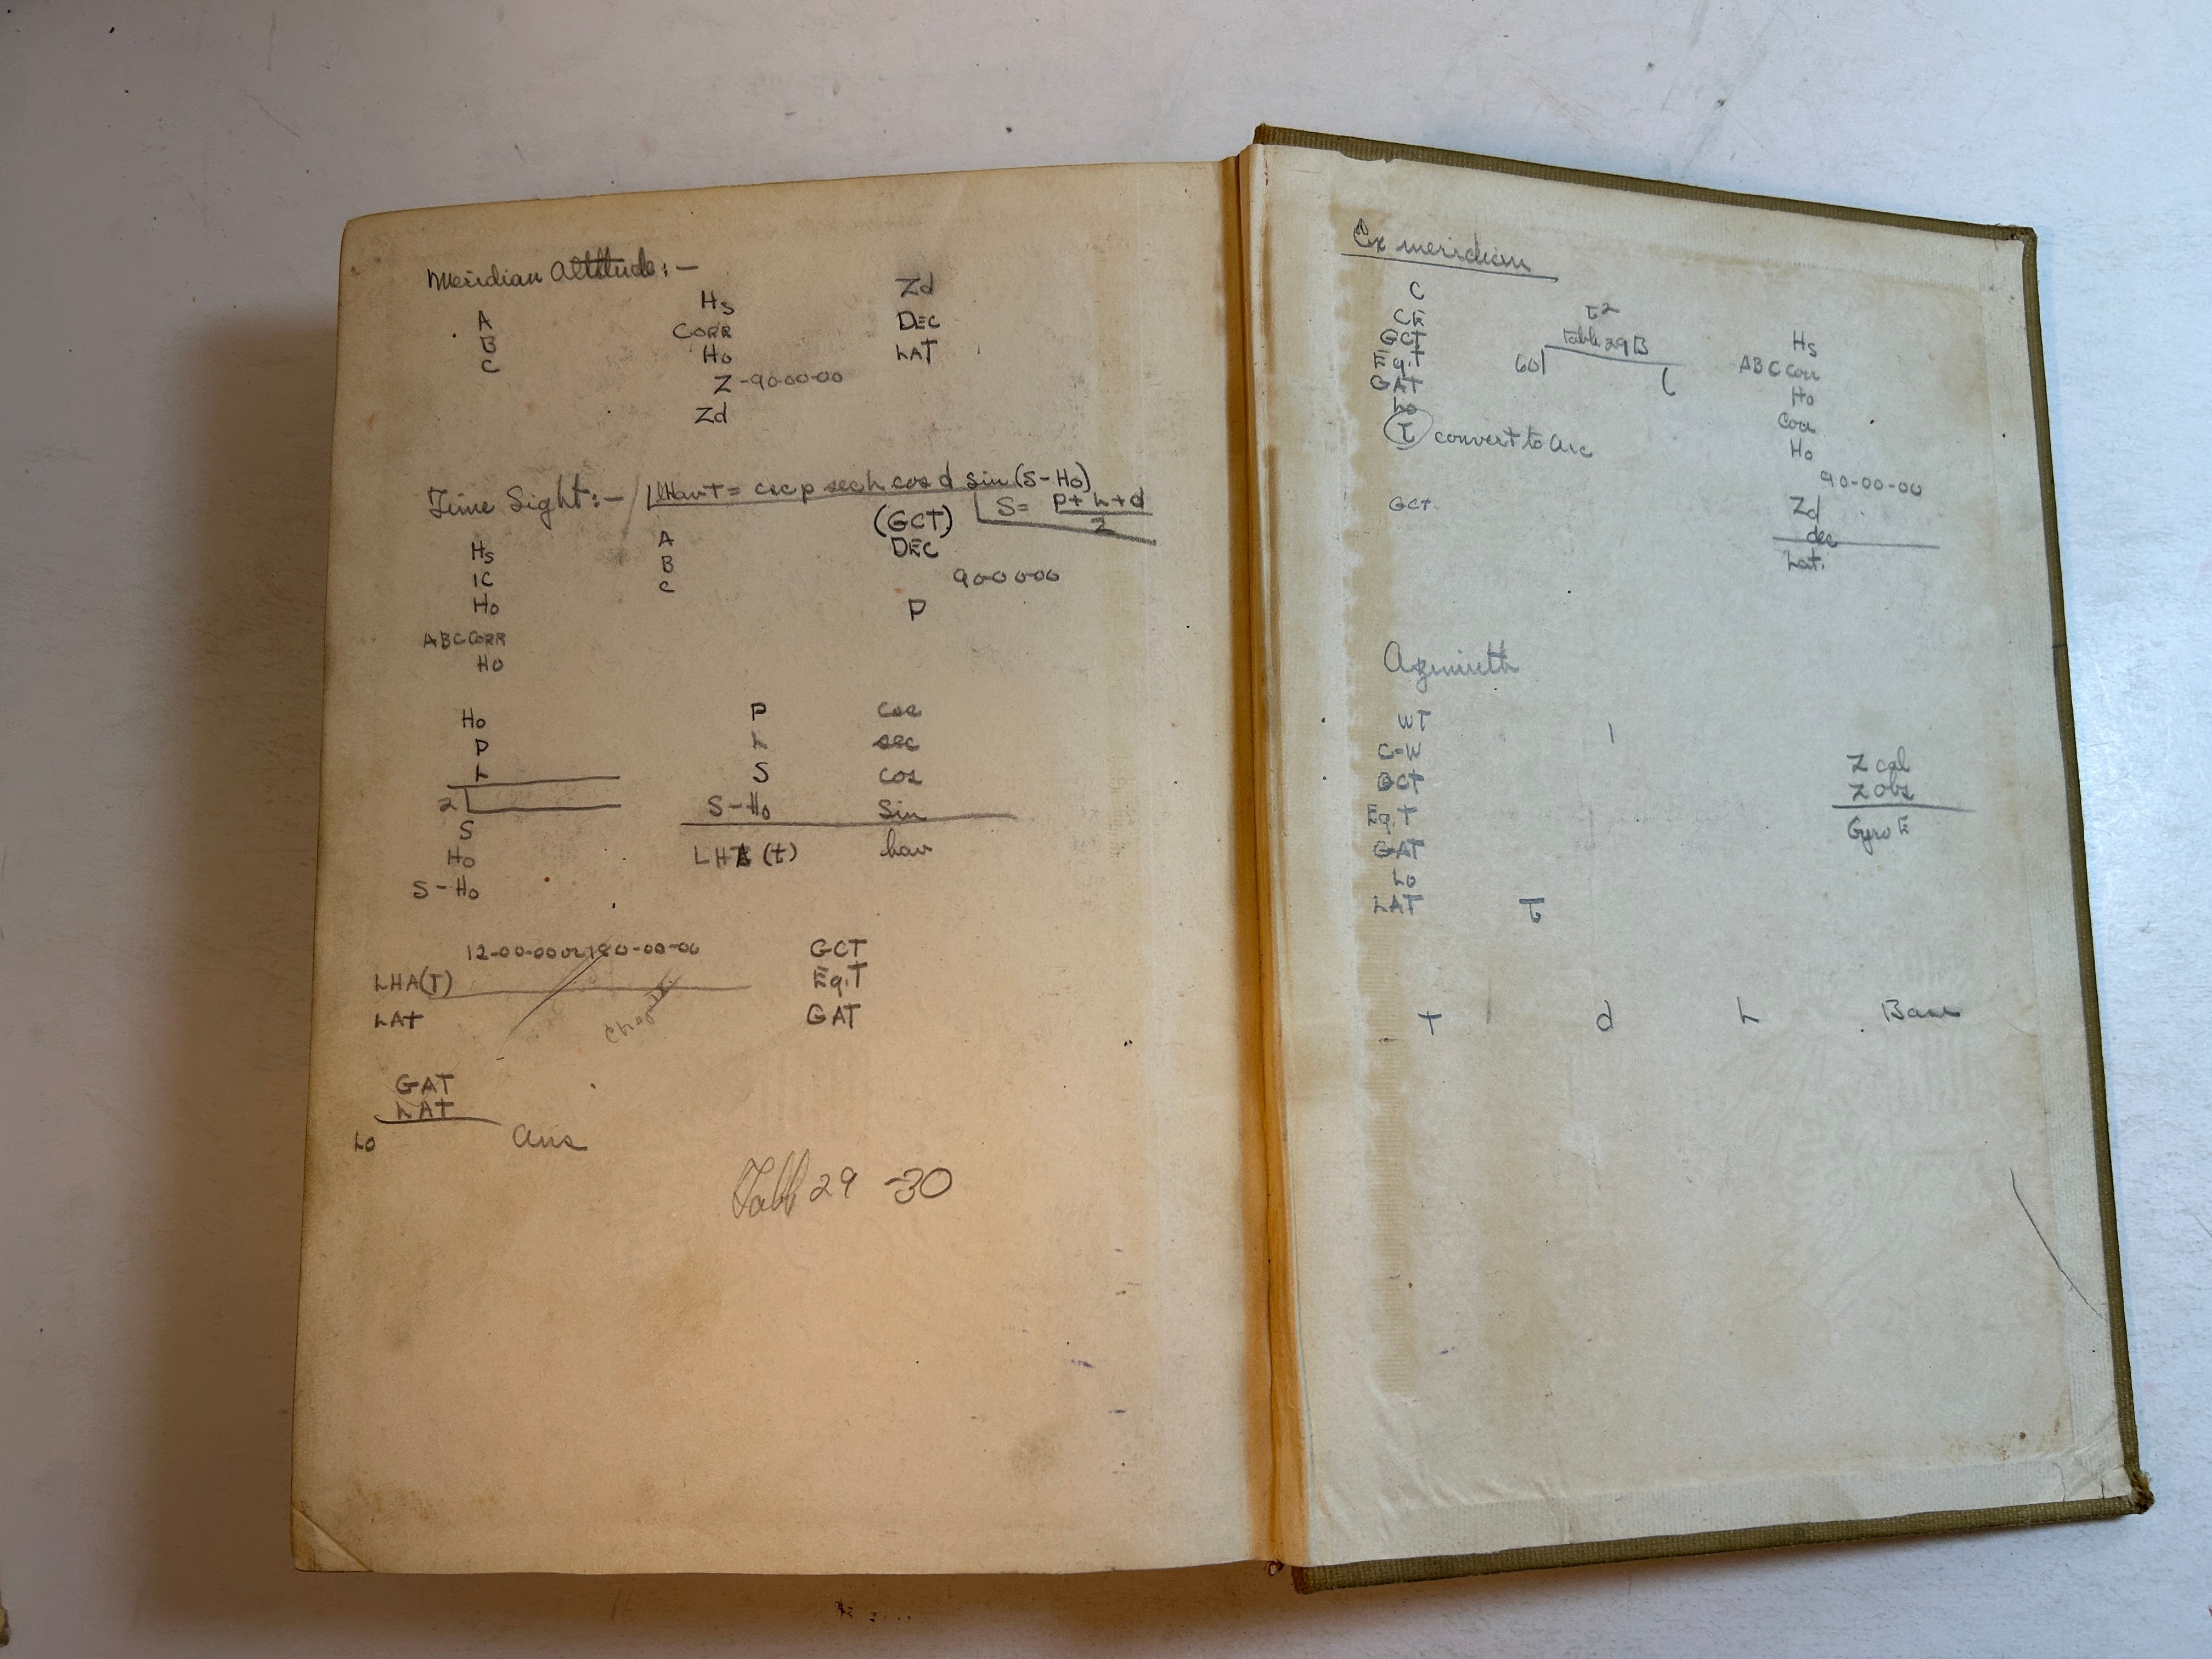 Meridian Altitude:-
A
B
C
Hs
CORR
Ho
Z -90-00-00
Zd
Zd
DEC
LAT
Time Sight:- Hav T = csc p sec L cos d sin (S-Ho)
S= p+L+d
2
Hs
IC
Ho
ABC CORR
Ho
A
B
C
(GCT)
DEC
90 00 00
P
Ho
P
L
2
S
Ho
S-Ho
P csc
L sec
S cos
S-Ho Sin
LHA (t) hav
12-00-00 or 180-00-00
LHA(T)
LAT
GCT
Eq.T
GAT
GAT
LAT
Lo Ans
Tabl 29 -30
Ex meridian
C
CE
GCT
Eq.T
GAT
Lo
T convert to arc
GCT
T2
Table 29B
60
Hs
ABC Corr
Ho
Corr
Ho
90-00-00
Zd
dec
Lat.
Azmiuth
WT
C-W
GCT
Eq.T
GAT
Lo
LAT T
Z cal
Z obs
Gyro E
T d L Base